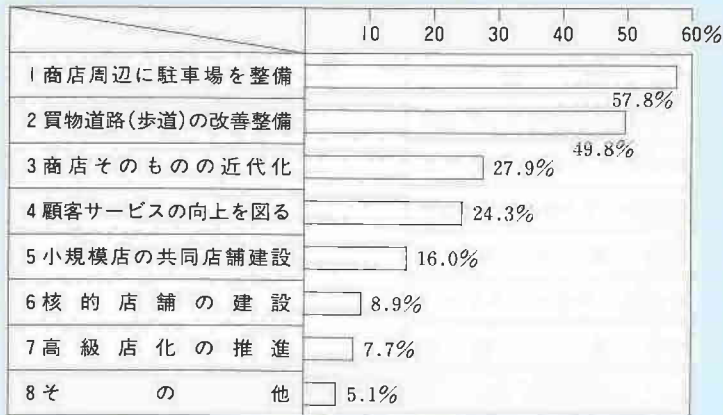 10 20 30 40 50 60%
1商店周辺に駐車場を整備
57.8%
2買物道路(歩道)の改善整備
49.8%
3商店そのものの近代化
27.9%
4顧客サービスの向上を図る
24.3%
5小規模店の共同店舗建設
16.0%
6核的店舗の建設
8.9%
7高級店化の推進
7.7%
8その他
5.1%